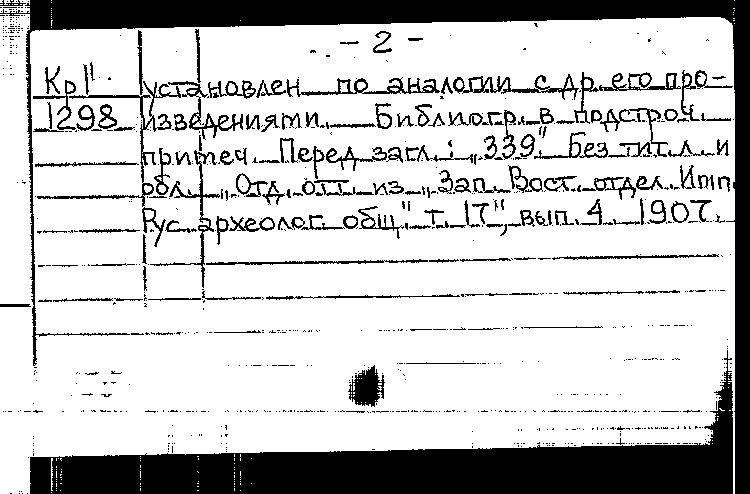 - 2 -
Кр11 установлен по аналогии с др. его про-
1298 изведениями. Библиогр. в подстроч.
примеч. Перед загл.: „339". Без тит. л. и
обл. „Отд. отт. из „Зап. Вост. отдел. Имп.
Рус. археолог. общ" т. 17", вып. 4. 1907.